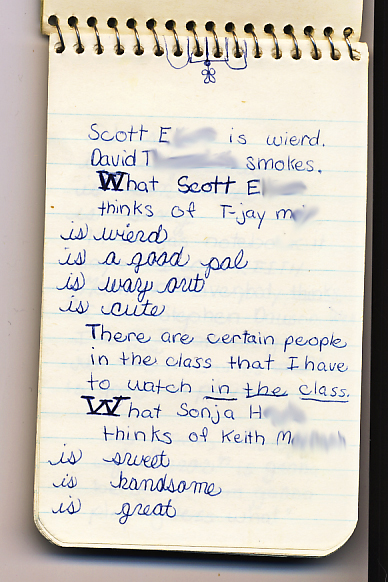 Scott E is wierd.
David T smokes.
What Scott E
thinks of T-jay m
is wierd
is a good pal
is way out
is cute
There are certain people
in the class that I have
to watch in the class.
What Sonja H
thinks of Keith M
is sweet
is handsome
is great